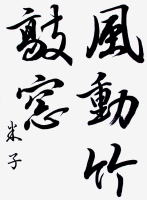 風動竹
敲窓
米子